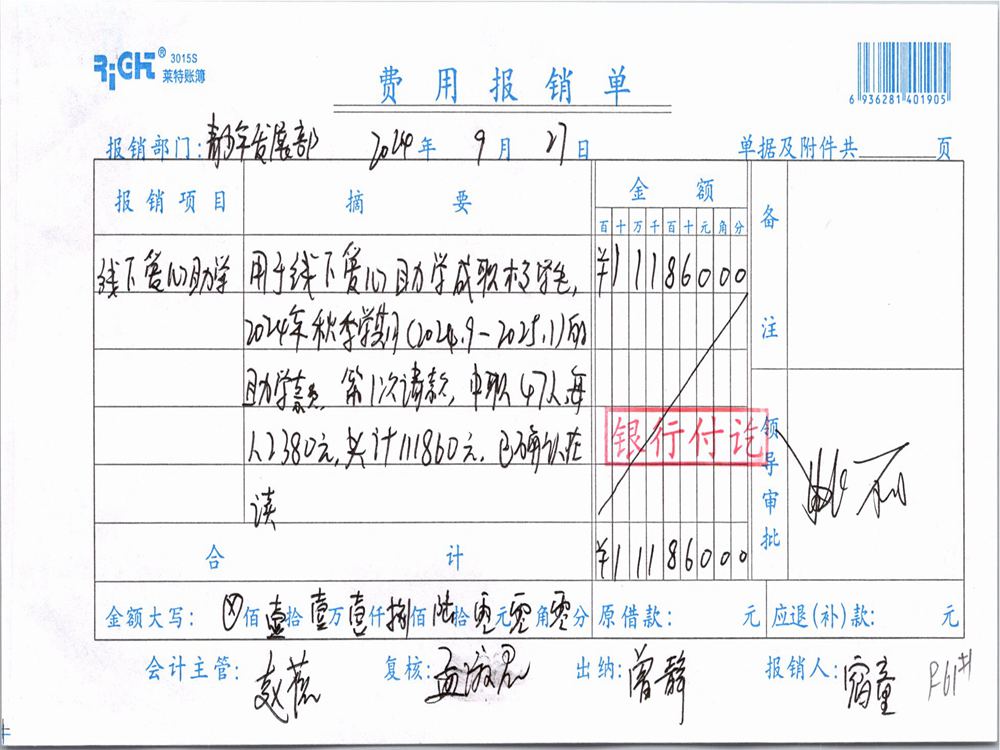 RiGHT® 3015S
莱特账簿
费用报销单
6 936281 401905
报销部门:青少年发展部 2024年9月27日 单据及附件共 页
报销项目 摘要 金额 备注
百十万千百十元角分
线下爱心助学 用于线下爱心助学成职校学生, ¥11186000
2024年秋季学期(2024.9-2025.1)的
助学款 第1次请款,中职47人,每
人2380元,共计111860元,已确认在
读
银行付讫
领导审批
合计 ¥11186000
金额大写: ⊗佰壹拾壹万壹仟捌佰陆拾零元零角零分 原借款: 元 应退(补)款: 元
会计主管: 赵薇 复核: 出纳: 曾静 报销人: 宿童